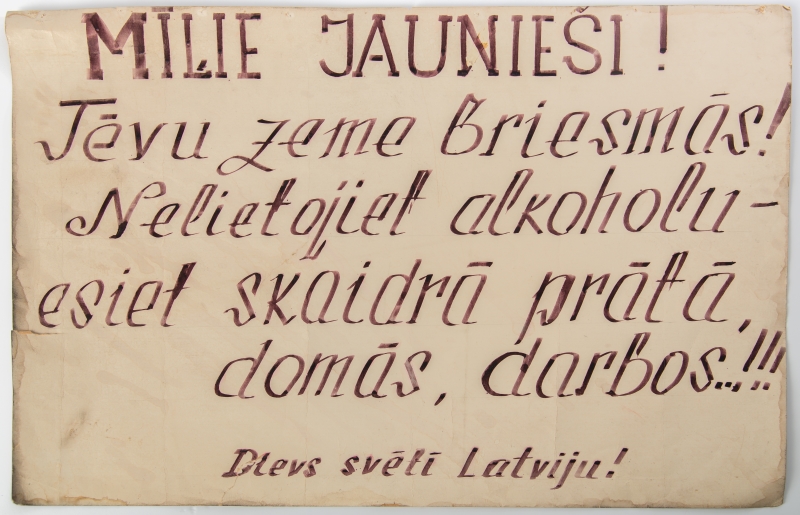 MĪĻIE JAUNIEŠI!
Tēvu zeme briesmās!
Nelietojiet alkoholu-
esiet skaidrā prātā,
domās, darbos..!!!
Dievs svētī Latviju!